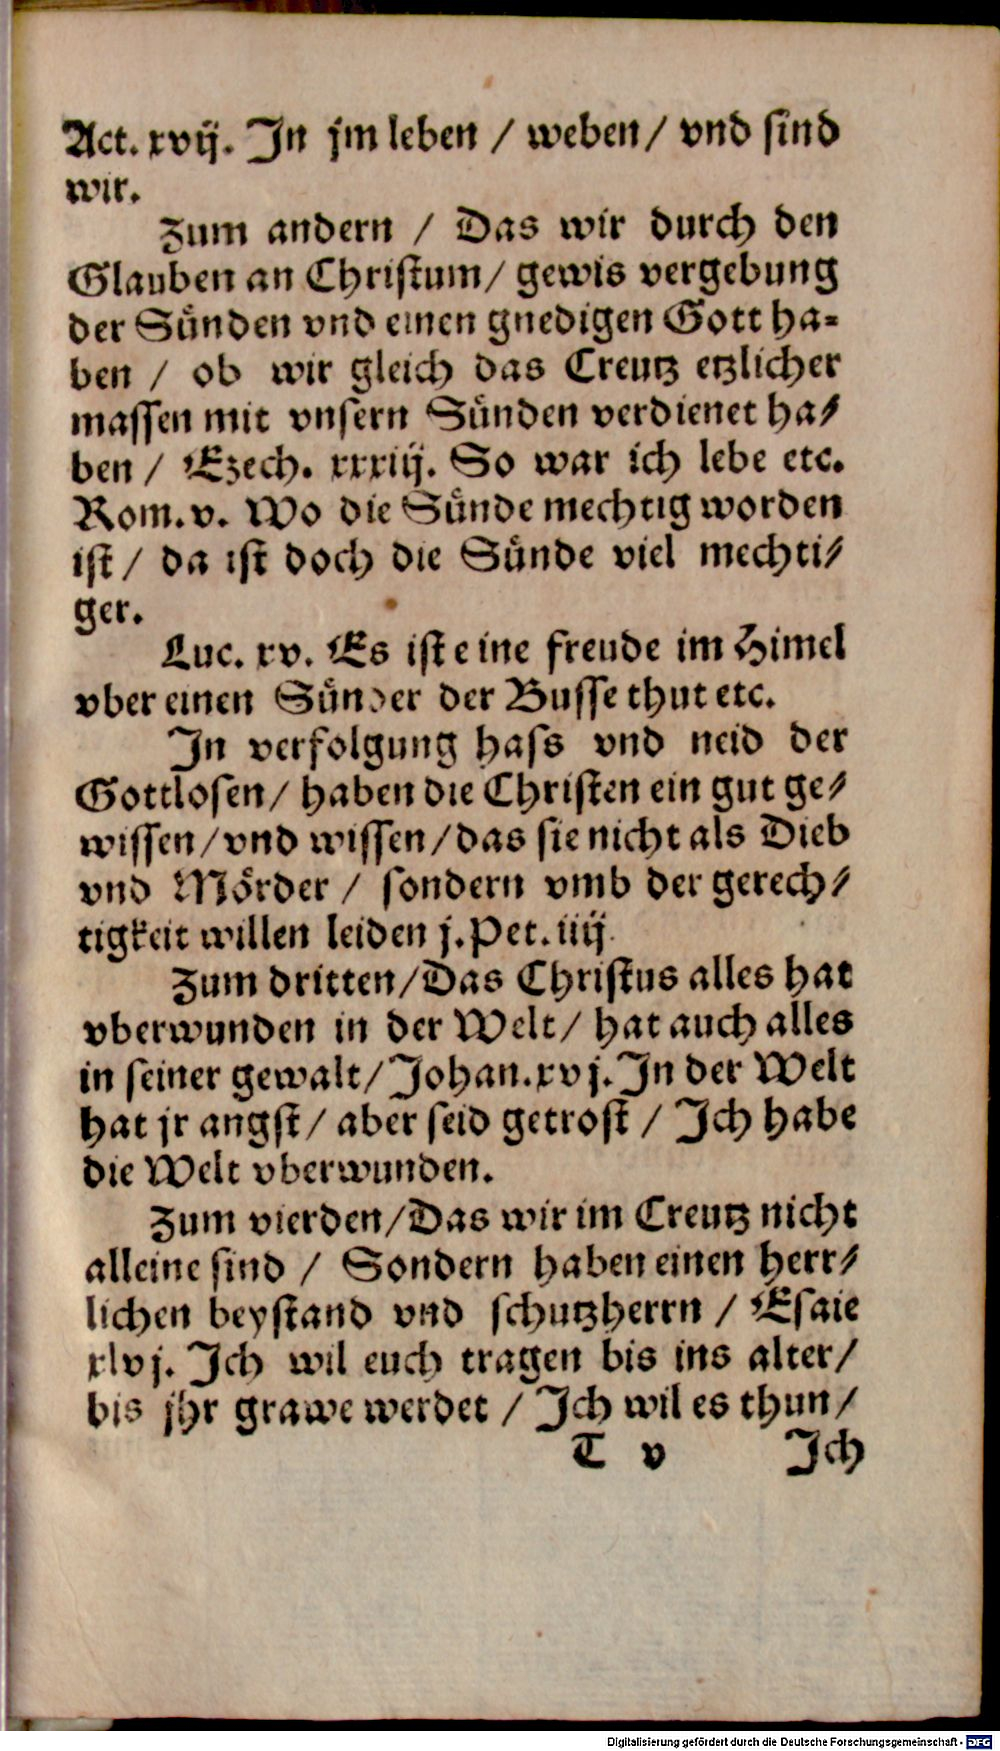 Act. xvij. In jm leben / weben / vnd sind
wir.
Zum andern / Das wir durch den
Glauben an Christum / gewis vergebung
der Sünden vnd einen gnedigen Gott ha=
ben / ob wir gleich das Creutz etzlicher
massen mit vnsern Sünden verdienet ha=
ben / Ezech. xxxiij. So war ich lebe etc.
Rom. v. Wo die Sünde mechtig worden
ist / da ist doch die Sünde viel mechti=
ger.
Luc. xv. Es ist eine freude im Himel
vber einen Sünder der Busse thut etc.
In verfolgung hass vnd neid der
Gottlosen / haben die Christen ein gut ge=
wissen / vnd wissen / das sie nicht als Dieb
vnd Mörder / sondern vmb der gerech=
tigkeit willen leiden j. Pet. iiij.
Zum dritten / Das Christus alles hat
vberwunden in der Welt / hat auch alles
in seiner gewalt / Johan. xvj. In der Welt
hat jr angst / aber seid getrost / Ich habe
die Welt vberwunden.
Zum vierden / Das wir im Creutz nicht
alleine sind / Sondern haben einen herr=
lichen beystand vnd schutzherrn / Esaie
xlvj. Ich wil euch tragen bis ins alter /
bis jhr grawe werdet / Ich wil es thun /
T v Ich
Digitalisierung gefördert durch die Deutsche Forschungsgemeinschaft - DFG